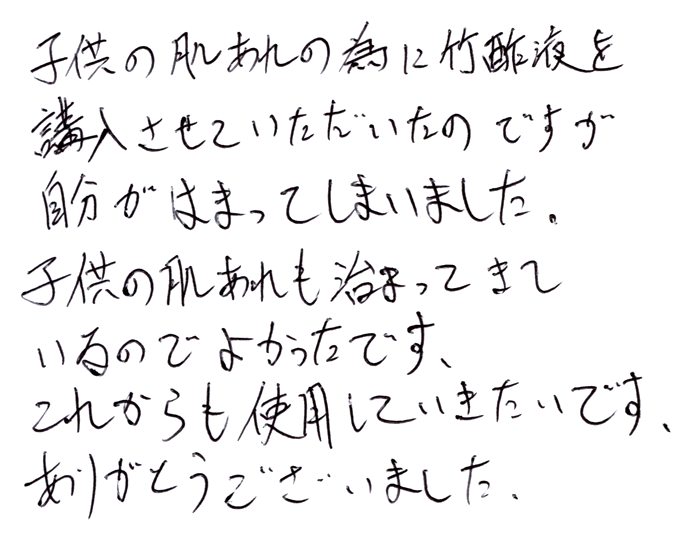 子供の肌あれの為に竹酢液を
購入させていただいたのですが
自分がはまってしまいました。
子供の肌あれも治まってきて
いるのでよかったです、
これからも使用していきたいです、
ありがとうございました、